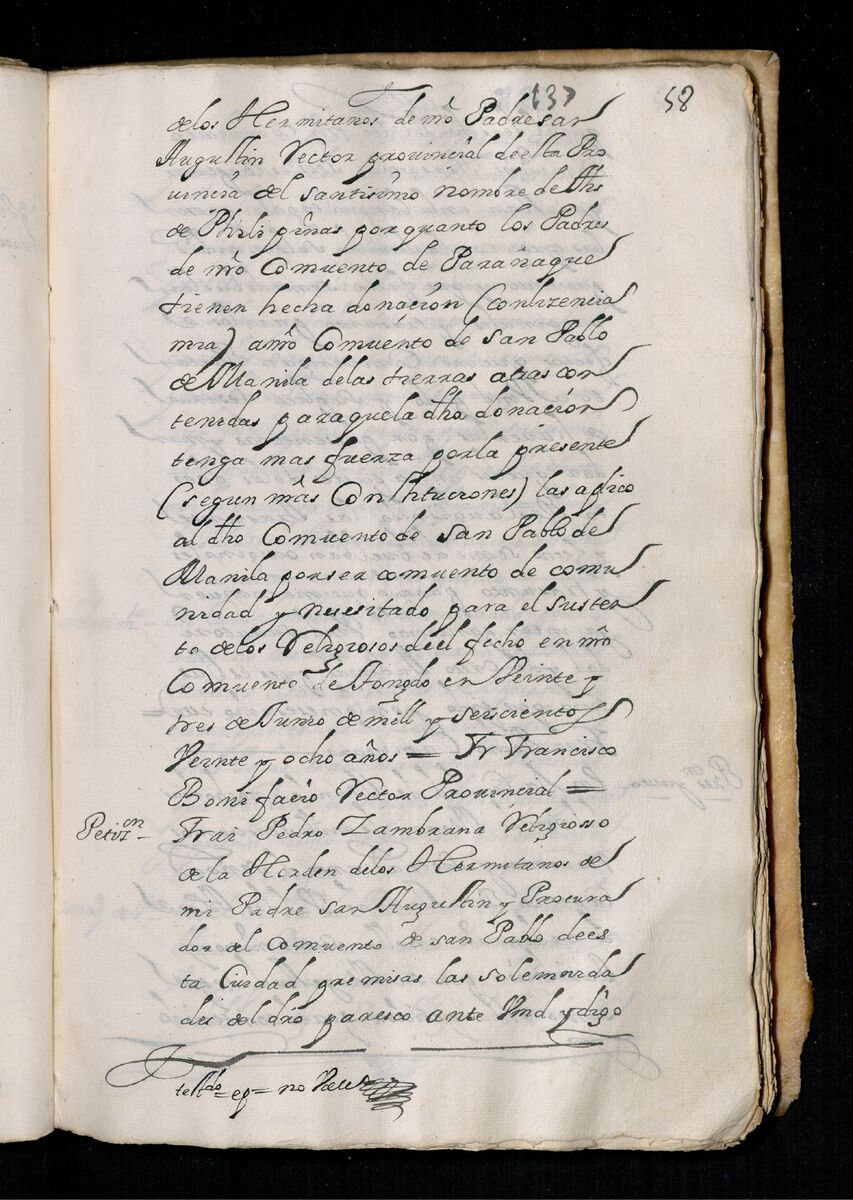 137 58
delos Hermitanos de nrō Padre san
Augustin Rector provincial de esta Pro
uincia del santisimo nombre de Jhs
de Philipinas por quanto los Padres
de nrō Comuento de Parañaque
tienen hecha donacion (conlizencia
mia) a nrō Comuento de san Pablo
de Manila delas tierras atras con
tenidas paraquela dha donacion
tenga mas fuerza porla presente
(segun nrãs Constituciones) las aplico
al dho Comuento de san Pablo de
Manila porser comuento de comu
nidad y nesesitado para el susten
to delos Religiosos de el fecho en nrō
Comuento de Tongdo en Veinte y
tres de Junio de mill y seiscientos
Veinte y ocho años = Fr Francisco
Bonifacio Rector Provincial =
Petizon Frai Pedro Zambrana Religiosso
de la Horden delos Hermitanos de
mi Padre san Augustin y Procura
dor del Comuento de san Pablo de es
ta Ciudad premisas las solemnida
des del dro paresco ante Vmd y digo
testdo = eq = no Vale